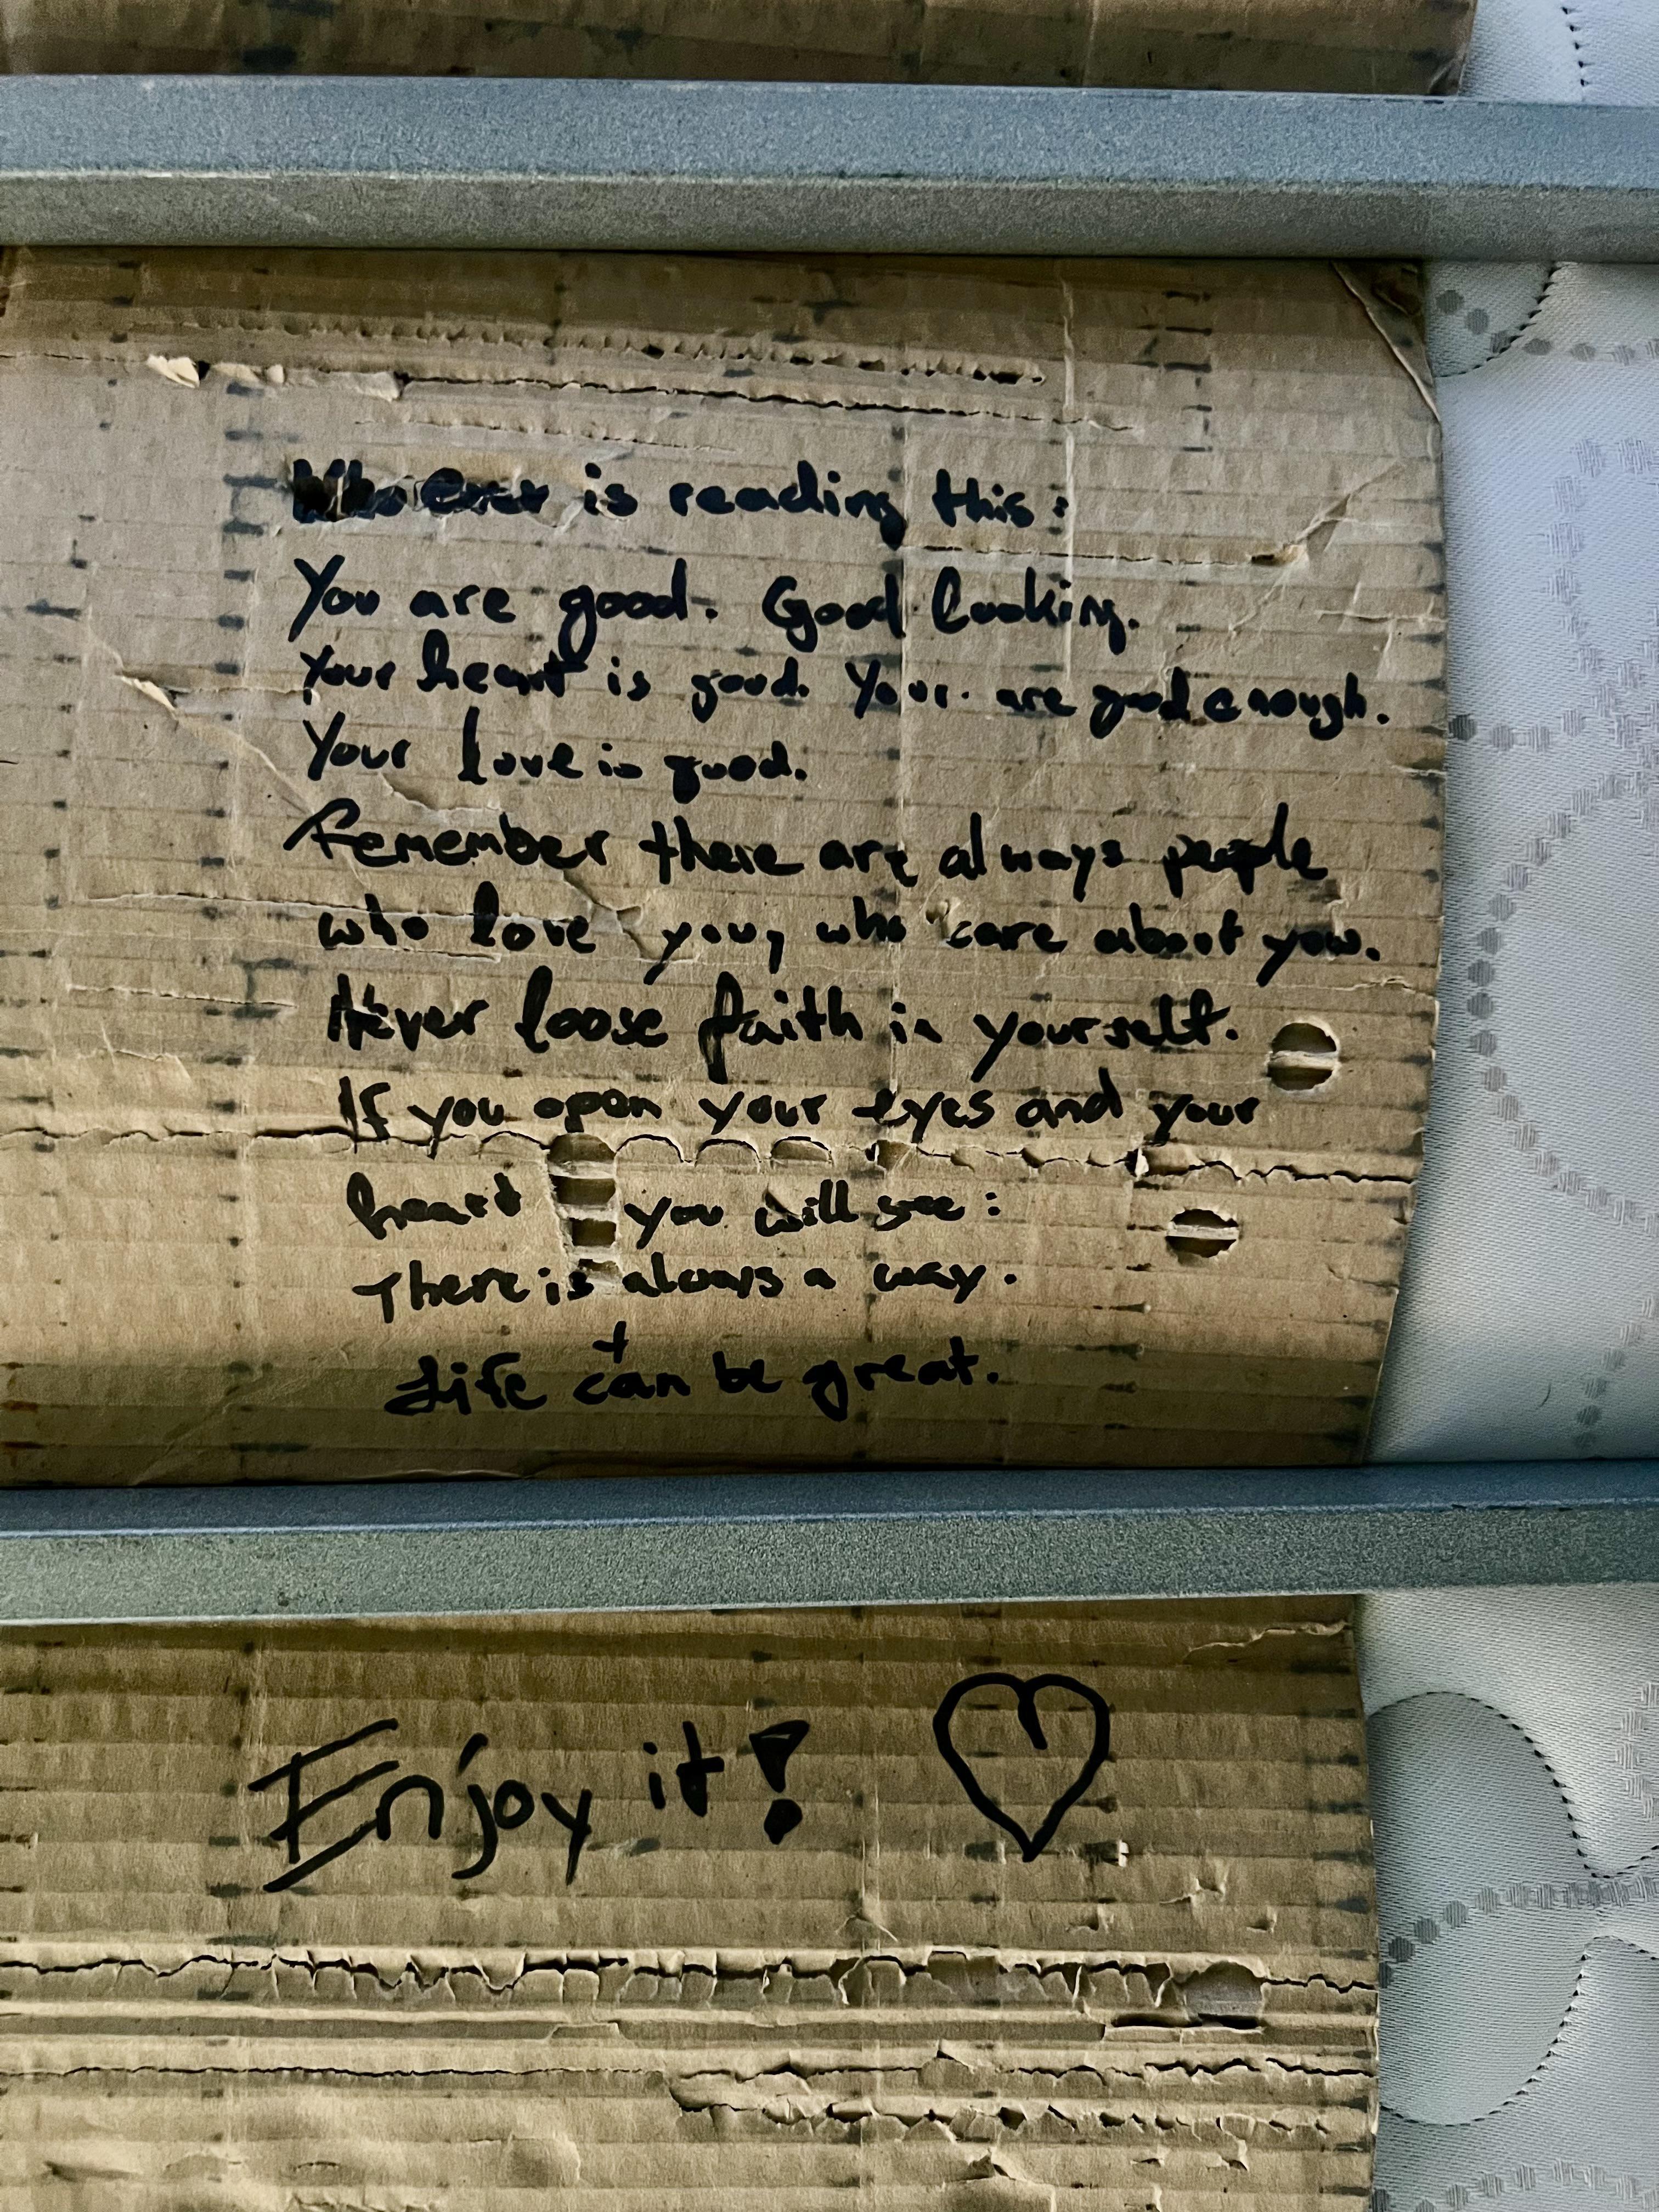 Who ever is reading this:
You are good. Good looking.
Your heart is good. Your are good enough.
Your love is good.
Remember there are always people
who love you, who care about you.
Never loose faith in yourself.
If you open your eyes and your
heart you will see:
There is always a way.
+
Life can be great.
Enjoy it!